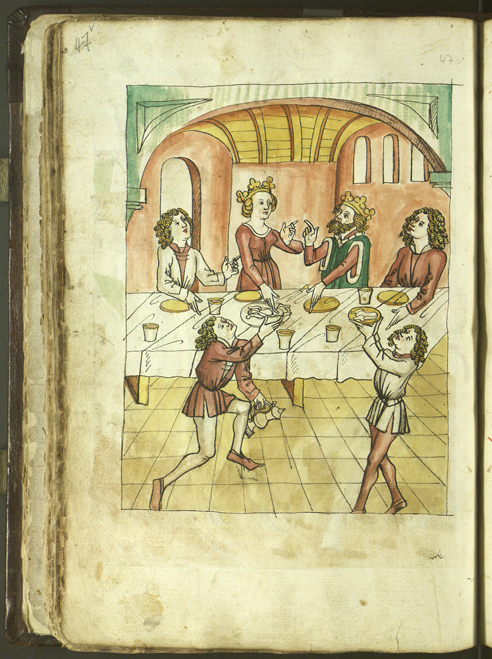 47v
47v